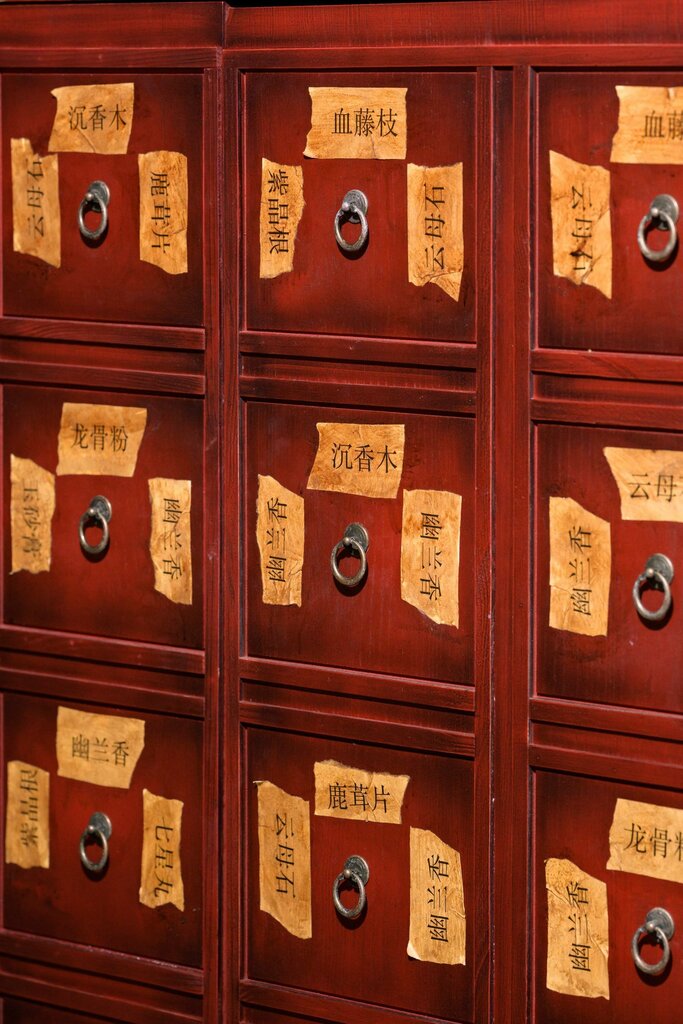 沉香木
云母石
鹿茸片
血藤枝
紫晶根
云母石
血藤
云母石
龙骨粉
幽兰香
沉香木
幽兰香
幽兰香
云母
幽兰香
幽兰香
紫晶根
七星丸
鹿茸片
云母石
幽兰香
龙骨粉
幽兰香